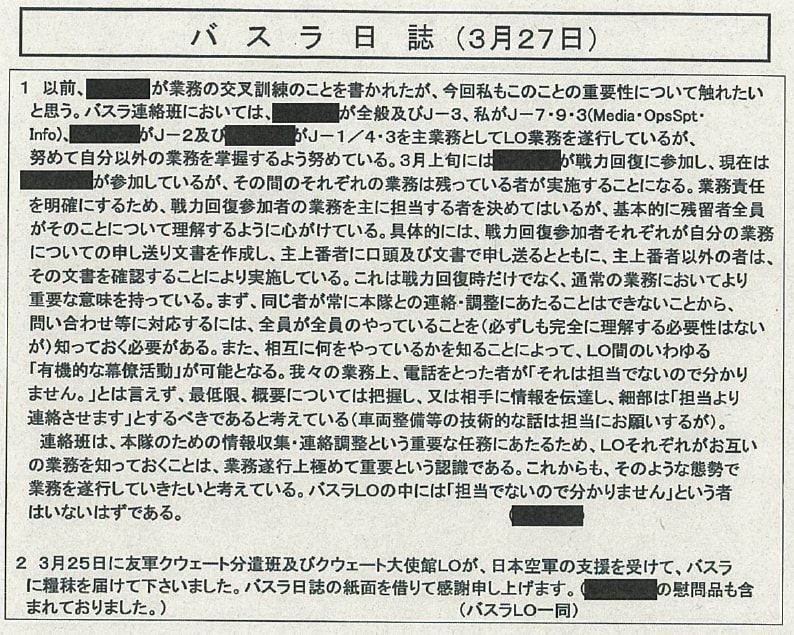 バスラ日誌（3月27日）
1 以前、が業務の交叉訓練のことを書かれたが、今回私もこのことの重要性について触れたい
と思う。バスラ連絡班においては、が全般及びJ－3、私がJ－7・9・3(Media・OpsSpt・
Info)、がJ－2及びがJ－1／4・3を主業務としてLO業務を遂行しているが、
努めて自分以外の業務を掌握するよう努めている。3月上旬にはが戦力回復に参加し、現在は
が参加しているが、その間のそれぞれの業務は残っている者が実施することになる。業務責任
を明確にするため、戦力回復参加者の業務を主に担当する者を決めてはいるが、基本的に残留者全員
がそのことについて理解するように心がけている。具体的には、戦力回復参加者それぞれが自分の業務
についての申し送り文書を作成し、主上番者に口頭及び文書で申し送るとともに、主上番者以外の者は、
その文書を確認することにより実施している。これは戦力回復時だけでなく、通常の業務においてより
重要な意味を持っている。まず、同じ者が常に本隊との連絡・調整にあたることはできないことから、
問い合わせ等に対応するには、全員が全員のやっていることを（必ずしも完全に理解する必要性はない
が）知っておく必要がある。また、相互に何をやっているかを知ることによって、LO間のいわゆる
「有機的な幕僚活動」が可能となる。我々の業務上、電話をとった者が「それは担当でないので分かり
ません。」とは言えず、最低限、概要については把握し、又は相手に情報を伝達し、細部は「担当より
連絡させます」とするべきであると考えている（車両整備等の技術的な話は担当にお願いするが）。
連絡班は、本隊のための情報収集・連絡調整という重要な任務にあたるため、LOそれぞれがお互い
の業務を知っておくことは、業務遂行上極めて重要という認識である。これからも、そのような態勢で
業務を遂行していきたいと考えている。バスラLOの中には「担当でないので分かりません」という者
はいないはずである。（）
2 3月25日に友軍クウェート分遣班及びクウェート大使館LOが、日本空軍の支援を受けて、バスラ
に糧秣を届けて下さいました。バスラ日誌の紙面を借りて感謝申し上げます。（の慰問品も含
まれておりました。）（バスラLO一同）